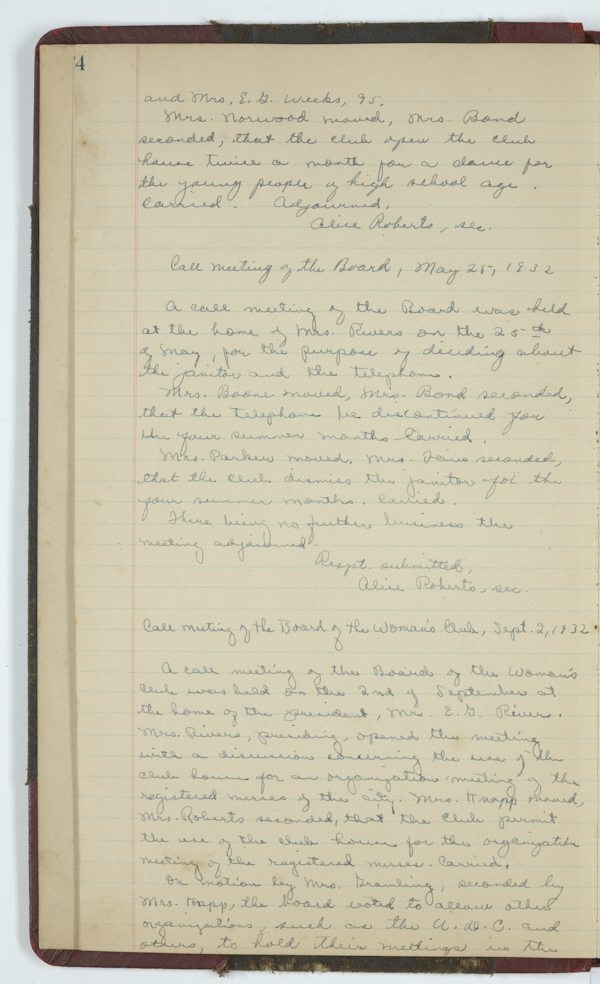 4
and Mrs. E. G. Weeks, 95.
Mrs. Norwood moved, Mrs. Bond
seconded, that the club open the club
house twice a month for a dance for
the young people of high school age.
Carried. Adjourned.
Alice Roberts, sec.
Call meeting of the Board, May 25, 1932
A call meeting of the Board was held
at the home of Mrs. Rivers on the 25th
of May, for the purpose of deciding about
the janitor and the telephone.
Mrs. Boone moved, Mrs. Bond seconded,
that the telephone be discontinued for
the four summer months. Carried.
Mrs. Parker moved, Mrs. seconded,
that the club dismiss the janitor for the
four summer months. Carried.
There being no further business the
meeting adjourned.
Respt. submitted,
Alice Roberts, sec.
Call meeting of the Board of the Woman's Club, Sept. 2, 1932
A call meeting of the Board of the Woman's
Club was held on the 2nd of September at
the home of the president, Mrs. E. G. Rivers.
Mrs. Rivers, presiding, opened the meeting
with a discussion concerning the use of the
club house for an organization meeting of the
registered nurses of the city. Mrs. Knapp moved,
Mrs. Roberts seconded, that the Club permit
the use of the club house for the organization
meeting of the registered nurses. Carried.
On motion by Mrs. Gramling, seconded by
Mrs. Knapp, the board voted to allow other
organizations, such as the U. D. C. and
others, to hold their meetings in the